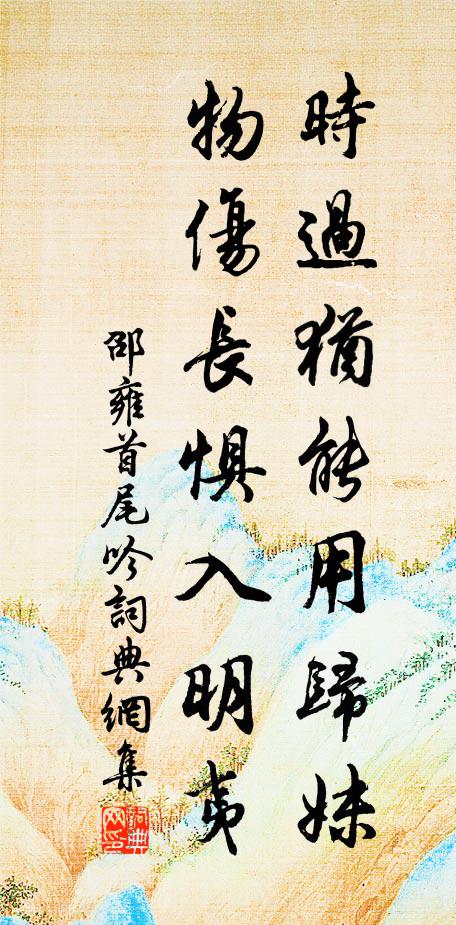 時過猶能用歸妹
物傷長懼入明夷
邵雍首尾吟詞典網集
詞典
网印